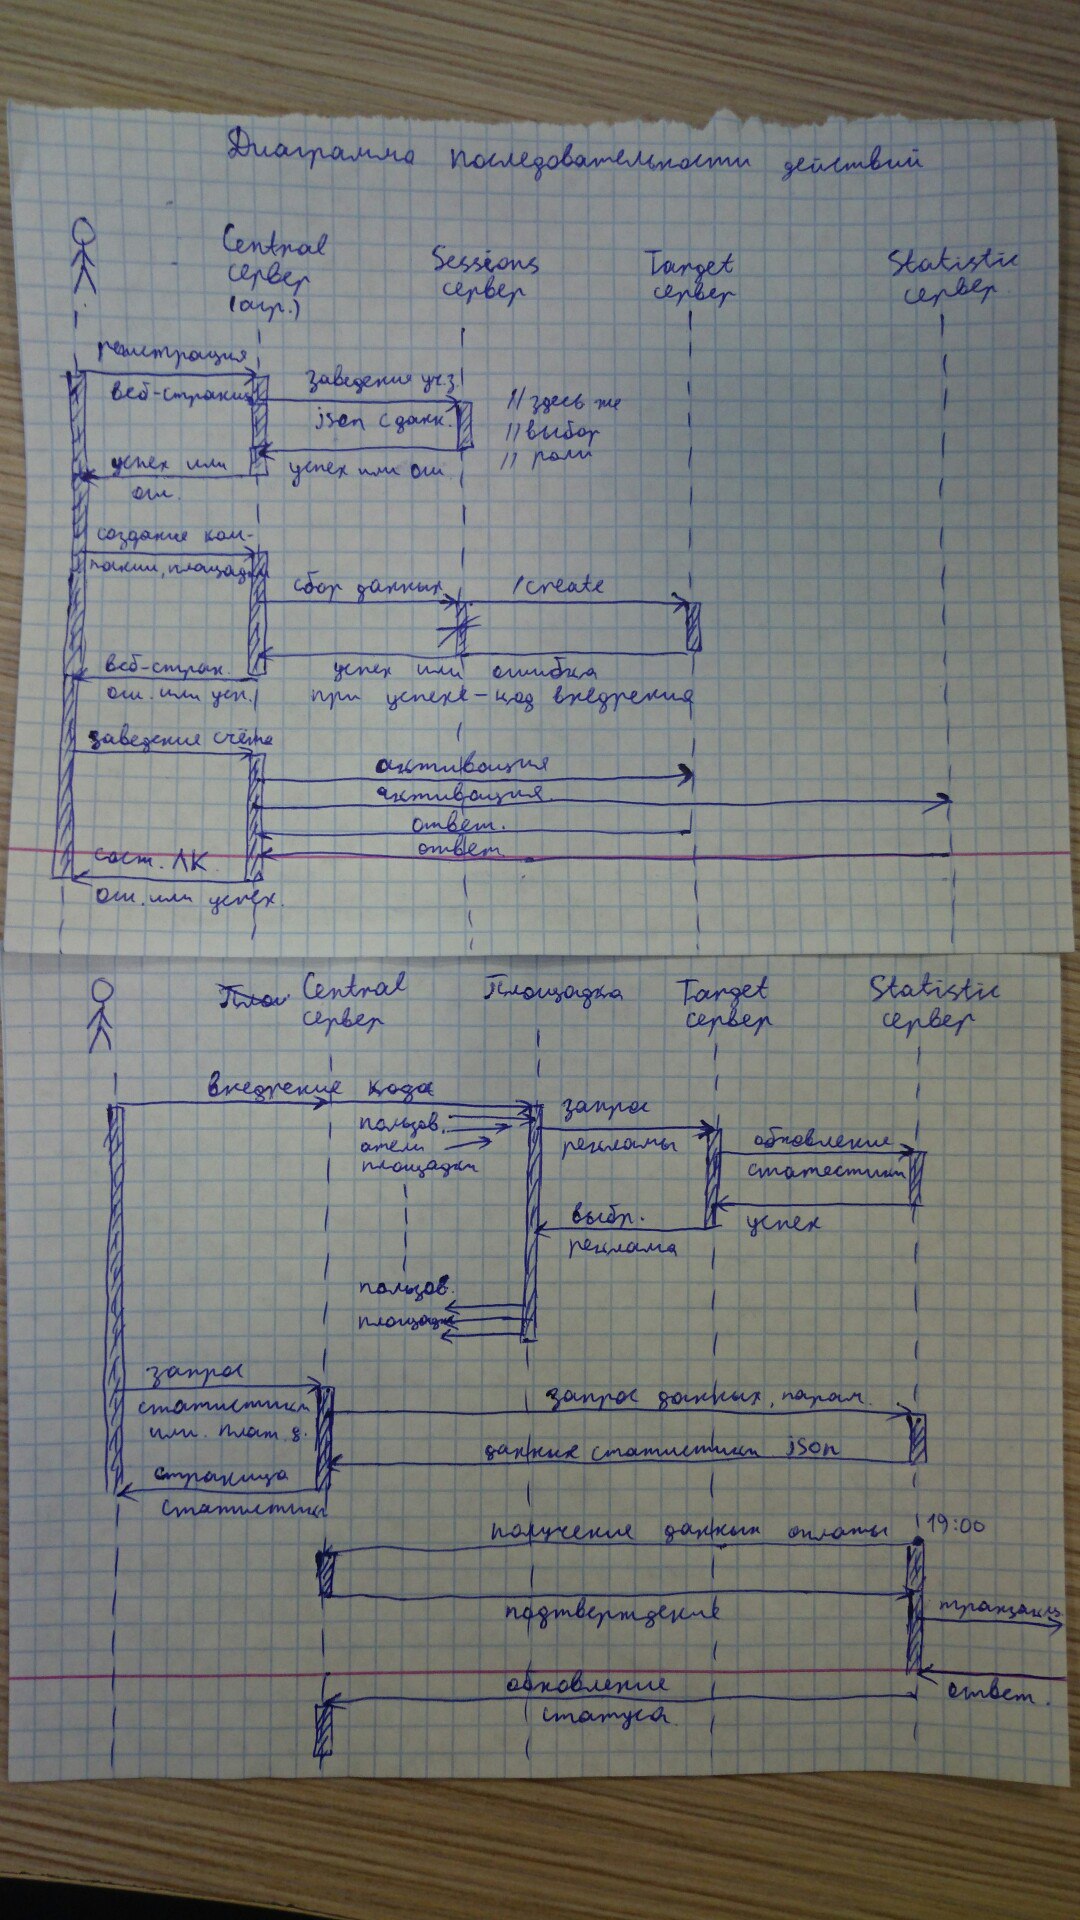 Диаграмма последовательности действий
Central
сервер
(агр.)
Sessions
сервер
Target
сервер
Statistic
сервер
регистрация
веб-страниц
заведение уч.з.
json с данн.
// здесь же
// выбор
// роли
успех или
ош.
успех или ош.
создание ком-
пании, площадки
сбор данных
/create
веб-стран.
ош. или усп.
успех или ошибка
при успехе - код внедрения
заведение счёта
активация
активация
ответ.
ответ
сост. ЛК
ош. или успех.
Central
сервер
Площадка
Target
сервер
Statistic
сервер
внедрение кода
пользов.
атели
площадки
запрос
рекламы
обновление
статестики
успех
выбр.
реклама
пользов.
площадки
запрос
статистики
или плат. д.
запрос данных, парам.
данные статистики json
страница
статистики
получение данных оплаты
19:00
подтверждение
транзакц.
ответ.
обновление
статуса